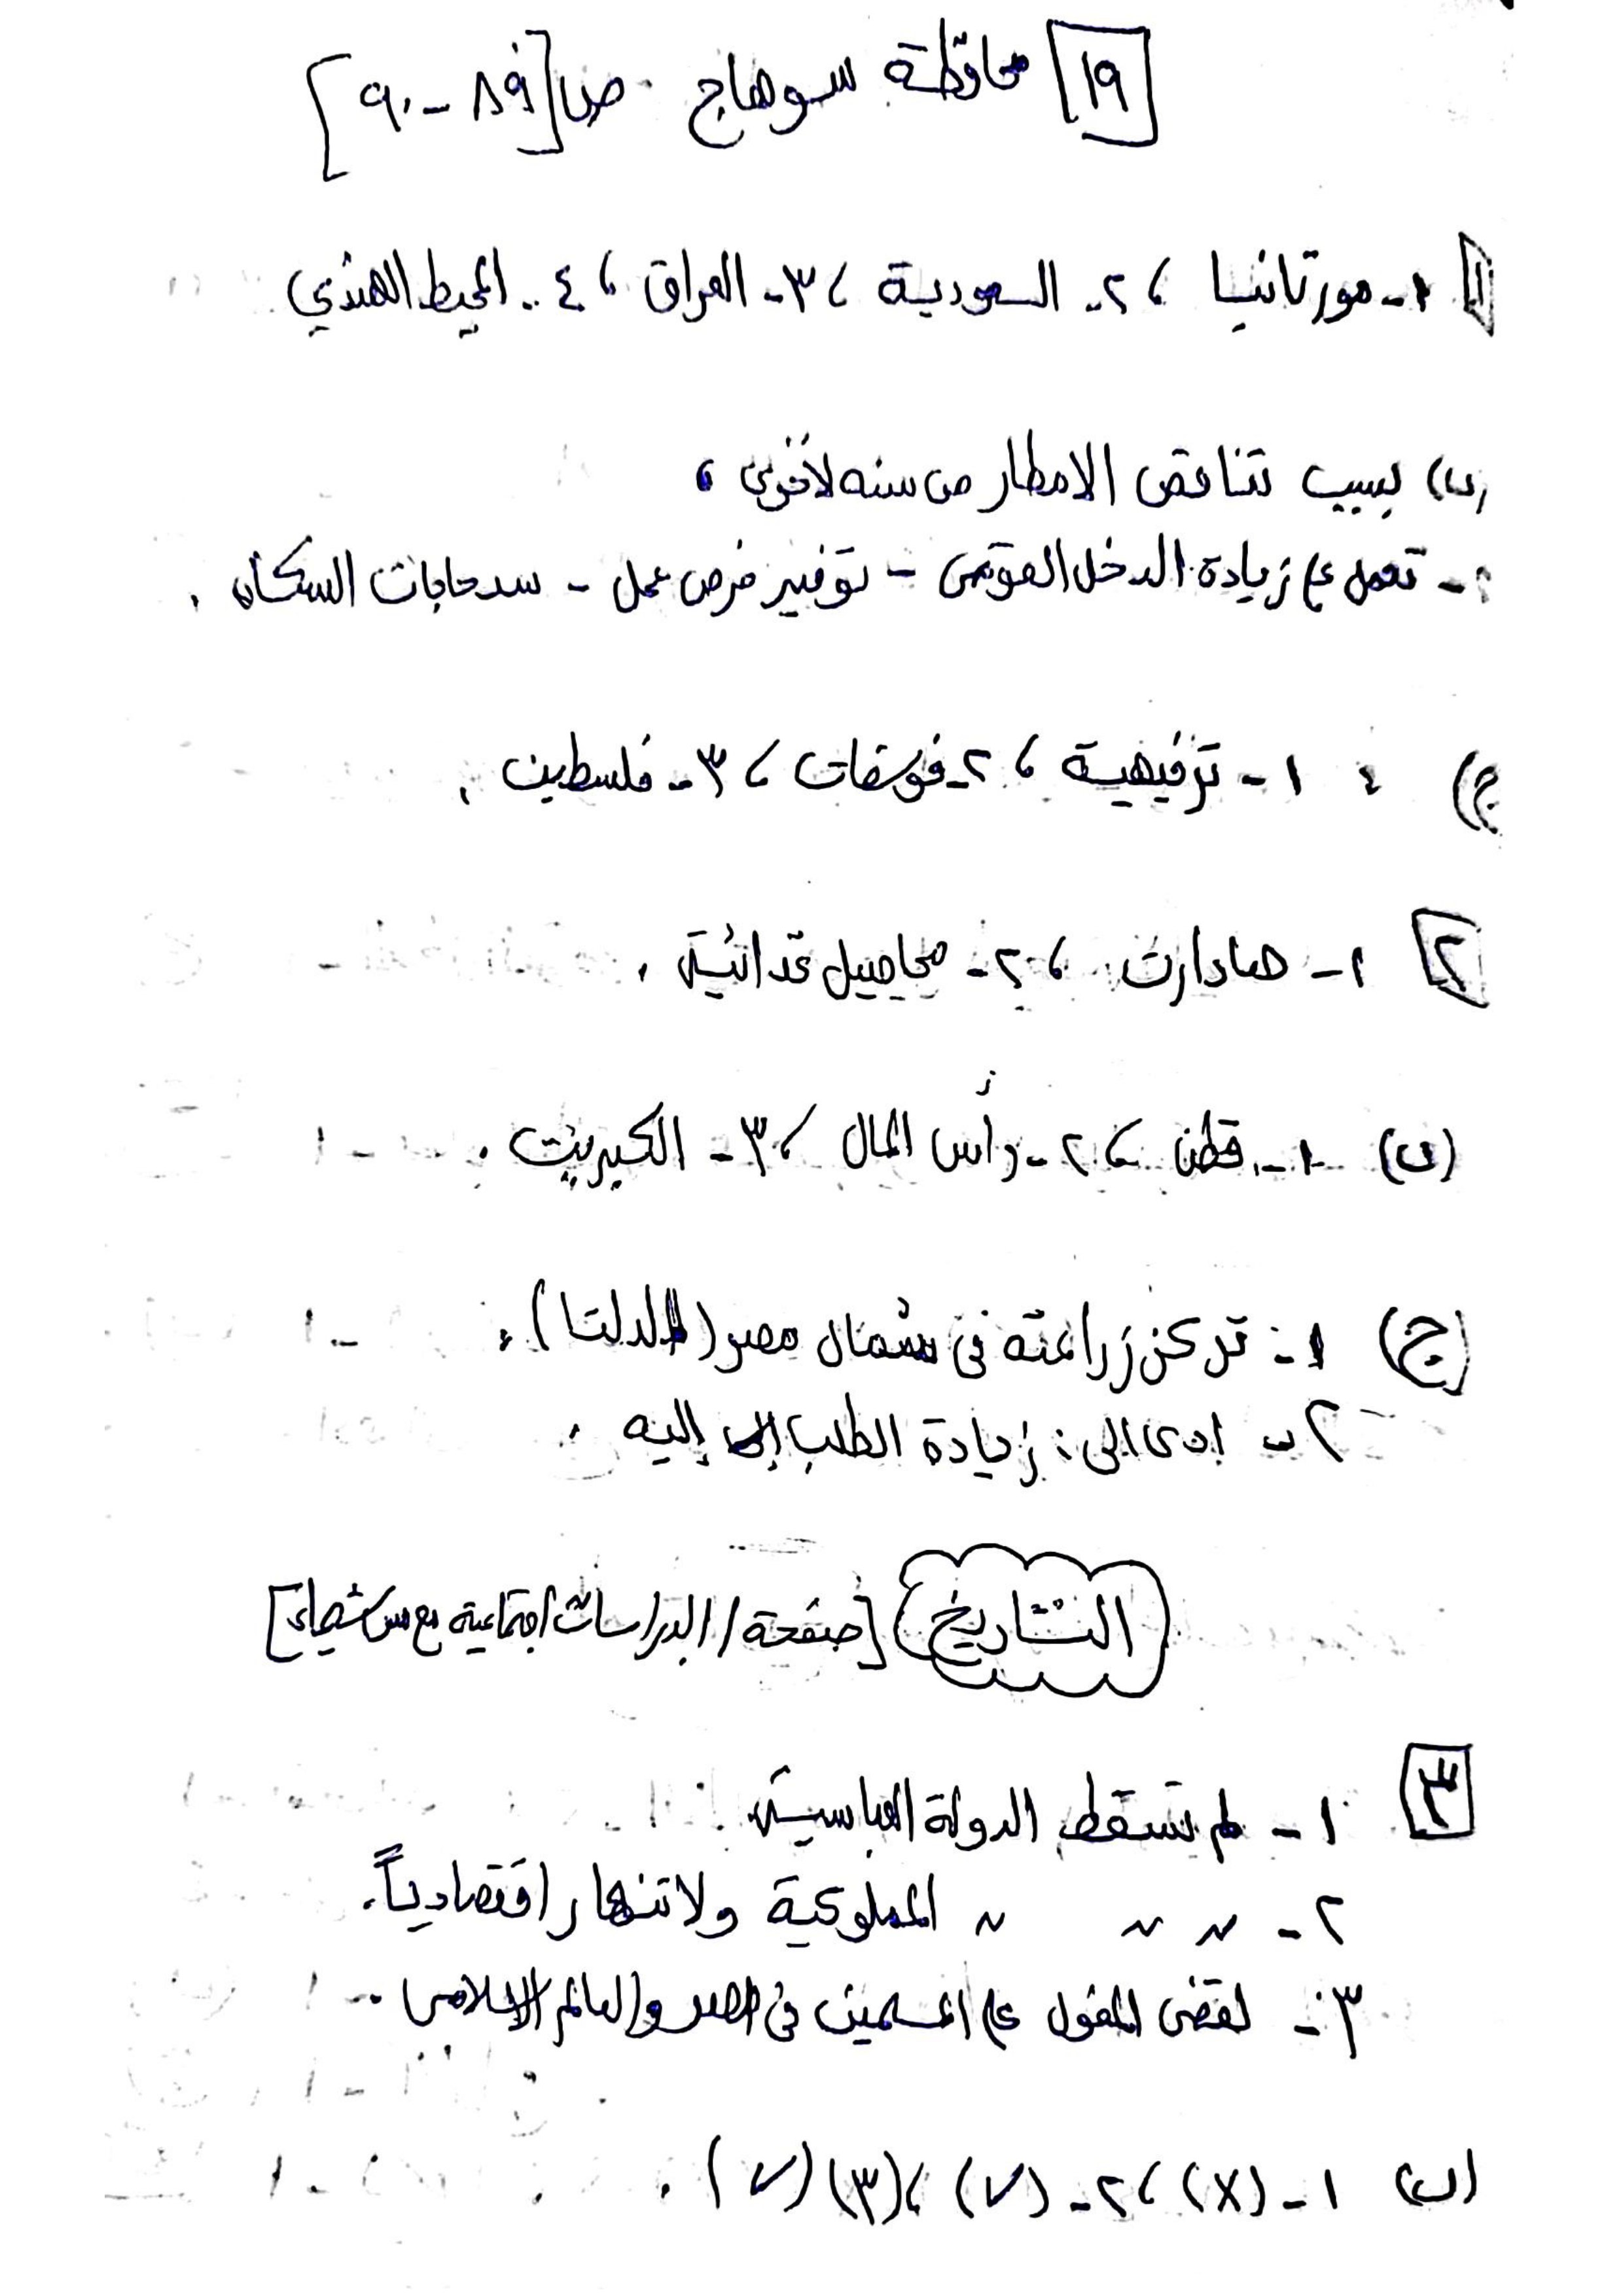 [١٩] محافظة سوهاج ص [٨٩ - ٩٠]
[١] ١- مورتانيا ، ٢- السعودية ، ٣- العراق ، ٤- المحيط الهندي
(ب) بسبب تناقص الامطار من سنه لأخرى ،
- تعمل علي زيادة الدخل القومى - توفير فرص عمل - سد حاجات السكان .
(ج) ١- ترفيهية ، ٢- فوسفات ، ٣- فلسطين .
[٢] ١- صادارت ، ٢- محاصيل غذائية .
(ب) ١- قطن ، ٢- رأس المال ، ٣- الكبريت .
(ج) ١- تركز زراعته فى شمال مصر (الدلتا) .
٢- ادى الى : زيادة الطلب إليه .
(التاريخ) [صفحة / الدراسات اجتماعية مع مس شيماء]
[٣] ١- لم تسقط الدولة العباسية .
٢- 〃 〃 〃 المملوكية ولا تنهار اقتصادياً .
٣- لقضى المغول علي المسلمين فى مصر والعالم الإسلامى .
(ب) ١- (X) ، ٢- (✓) ، (٣) (✓) .